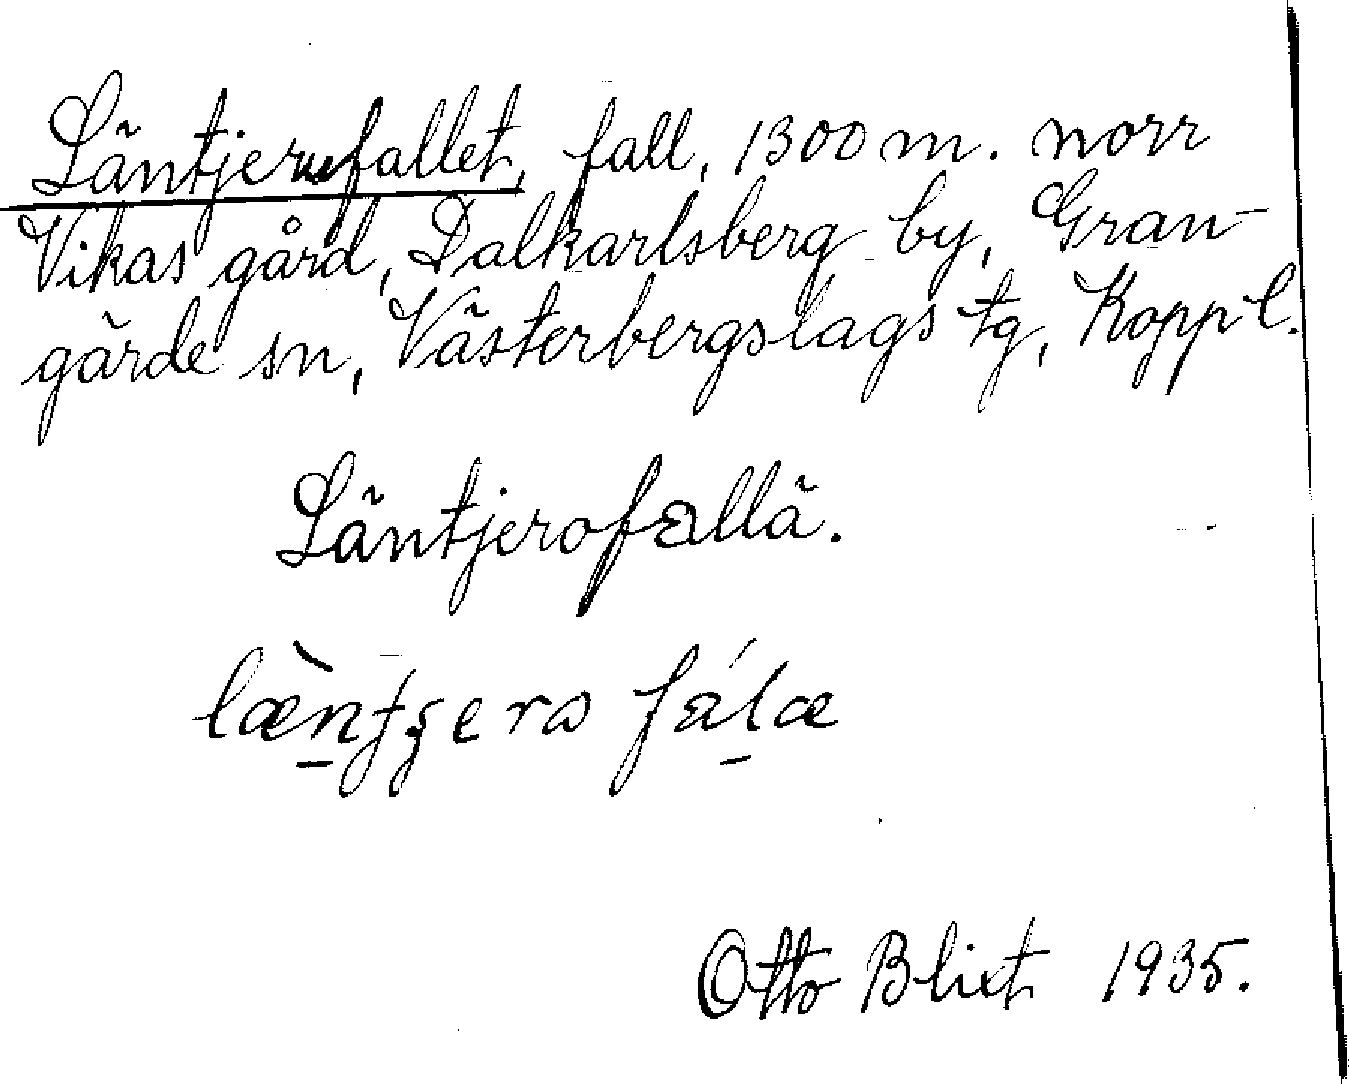 Läntjerufallet, fall, 1300 m. norr
Vikas gård, Dalkarlsberg by, Gran-
gärde sn, Västerbergslags tg, Kopp. l.
Läntjerofallä.
Otto Blixt 1935.